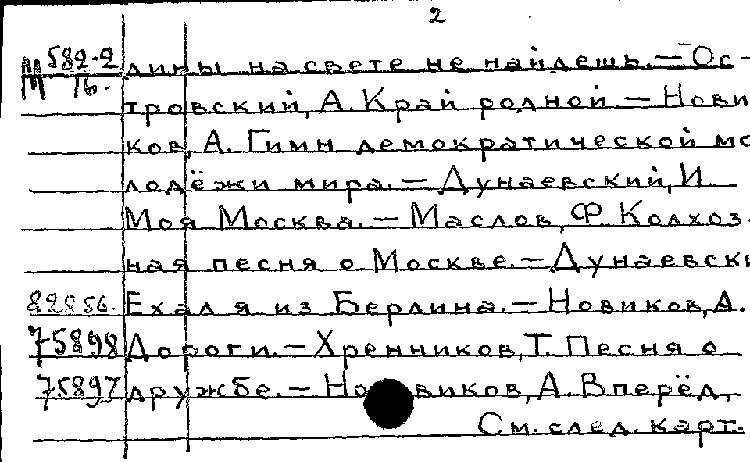 2
М 582-2 лины на свете не найдешь. — Ос-
16. тровский, А. Край родной — Нови
ков, А. Гимн демократической мо
лодёжи мира. — Дунаевский, И
Моя Москва. — Маслов, Ф Колхоз-
ная песня о Москве. — Дунаевски
82856. Ехал я из Берлина. — Новиков, А.
75898 Дороги. — Хренников, Т. Песня о
75897 дружбе. — Но виков, А. Вперёд,
См. след. карт.